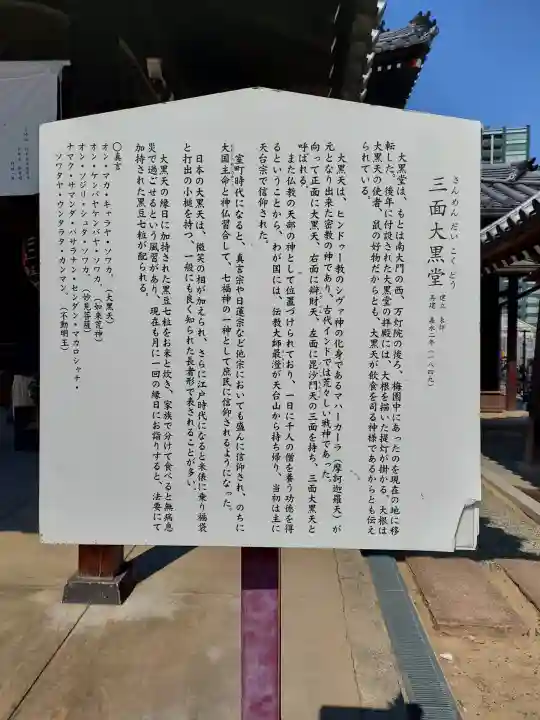 さんめんだいこくどう
三面大黒堂
建立 未詳
再建 嘉永二年(一八四九)
大黒堂は、もとは南大門の西、万灯院の後ろ、梅園中にあったのを現在の地に移
転した。後年に付設された大黒堂の拝殿には、大根を描いた提灯が掛かる。大根は
大黒天の使者、鼠の好物だからとも、大黒天が飲食を司る神様であるからとも伝え
られている。
大黒天は、ヒンドゥー教のシヴァ神の化身であるマハーカーラ(摩訶迦羅天)が
元となり出来た密教の神であり、古代インドでは荒々しい戦神であった。
向って正面に大黒天、右面に辯財天、左面に毘沙門天の三面を持ち、三面大黒天と
呼ばれる。
また仏教の天部の神として位置づけられており、一日に千人の僧を養う功徳を得
るということから、わが国には、伝教大師最澄が天台山から持ち帰り、当初は主に
天台宗で信仰された。
室町時代になると、真言宗や日蓮宗など他宗においても盛んに信仰され、のちに
大国主命と神仏習合して、七福神の一神として庶民に信仰されるようになった。
日本の大黒天は、微笑の相が加えられ、さらに江戸時代になると米俵に乗り福袋
と打出の小槌を持つ、一般にも良く知られた長者形で表されることが多い。
大黒天の縁日に加持された黒豆七粒をお米と炊き、家族で分けて食べると無病息
災で過ごせるという風習があり、現在も月に一回の縁日にお詣りすると、法要にて
加持された黒豆七粒が配られる。
〇真言
オン・マカ・キャラヤ・ソワカ。(大黒天)
オン・ケンバヤ・ケンバヤ・ソワカ。(如来荒神)
オン・ソジリ・シュタ・ソワカ。(妙見菩薩)
ナマク・サマンダ・バサラナン・センダン・マカロシャナ・
ソワタヤ・ウンタラタ・カンマン。(不動明王)